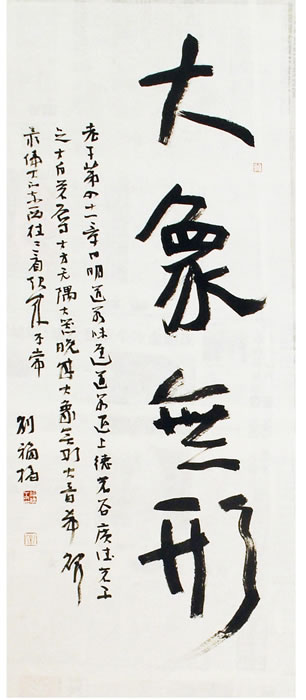 大象無形
老子第四十一章曰明道若昧進道若退上德若谷廣德若不
足大白若辱大方无隅大器晚成大象無形大音希聲
偉大的东西往往看似
劉福